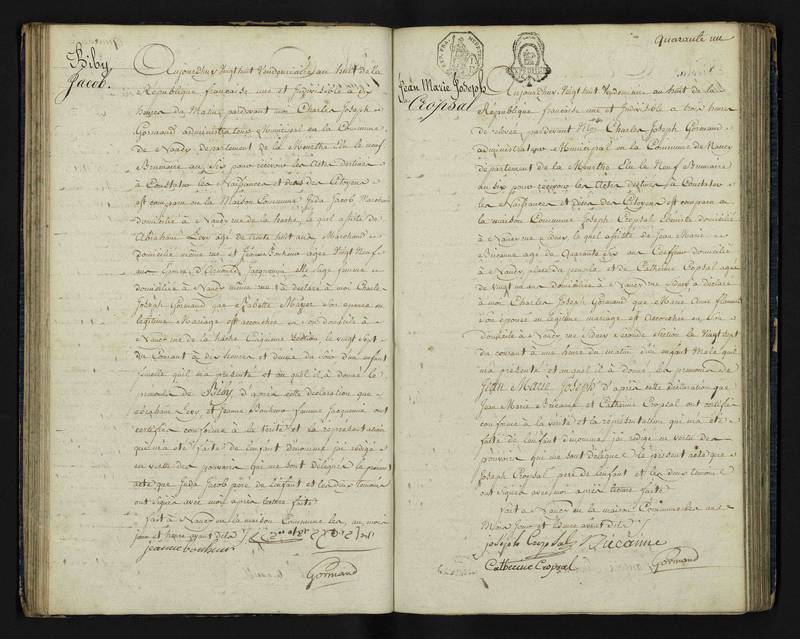 Biby
Jacob.
Aujourdhuy Vingt huit Vendemiaire, au huit de la
Republique française une et Indivisible à dix
heures du Matin pardevant moi Charles Joseph
Gormand administrateur Municipal en la Commune
de Nancy departement de la Meurthe Elu le neuf
Brumaire an Six pour recevoir les actes destinés
à Constater les Naissances et deces des Citoyens
est comparu en la Maison Commune Juda Jacob Marchand
domicilié à Nancy rue de la hache, lequel assisté de
Abraham Levy agé de trente huit ans Marchand
domicilié même rue et Jeanne Bonheur agée Vingt Neuf
ans femme Jacquemin sage femme
domiciliée à Nancy même rue à déclaré à moi Charles
Joseph Gormand que Mayer son epouse en
legitime Mariage est accouchée en Son domicile à
Nancy rue de la hache Cinquieme Section le vingt Sept
du Courant à dix heures et demie du Soir d'un enfant
femelle qu'il m'a présenté et au quel il a donné le
prenom de Biby, d'après cette déclaration que
Abraham Levy et Jeanne Bonheur femme Jacquemin ont
certifiée conforme à la Verité et la représentation
qui m'a été faite de l'enfant dénommé j'ai rédigé
en vertu des pouvoirs qui me sont délégués le présent
acte que Juda Jacob père de l'enfant et les deux temoins
ont signés avec moi après lecture faite
fait à Nancy en la maison Commune les an, mois
jour et heure avant dits
jeanne bonheur
Gormand
quarante un
Jean Marie Joseph
Cropsal
Aujourdhuy Vingt huit Vendemiaire an huit de la
République française une et Indivisible à trois heures
de relevée pardevant Moi Charles Joseph Gormand
administrateur Municipal en la Commune de Nancy
département de la Meurthe Elu le Neuf Brumaire
an Six pour recevoir les actes destinés à Constater
les Naissances et Deces des Citoyens est comparu en
la maison Commune Joseph Cropsal domicilié
à Nancy rue Sidney, lequel assisté de Jean Marie
Bicanne agé de Quarante Six ans Coeffeur domicilié
à Nancy, place du peuple et de Catherine Cropsal agée
de vingt ans domiciliée à Nancy rue Sidney à déclaré
à moi Charles Joseph Gormand que Marie Anne
son épouse en legitime mariage est Accouchée en Son
domicile à Nancy rue Sidney Seconde Section le Vingt Sept
du courant à une heure du matin d'un enfant Male qu'il
m'a présenté et au quel il a donné les prenoms de
Jean Marie Joseph d'après cette déclaration que
Jean Marie Bicanne et Catherine Cropsal ont certifiée
conforme à la verité et la représentation qui m'a été
faite de l'enfant dénommé j'ai rédigé en vertu des
pouvoirs qui me sont délégués le présent acte que
Joseph Cropsal père de l'enfant et les deux temoins
ont signés avec moi après lecture faite
fait à Nancy en la maison Commune les an
Mois Jour et heure avant dits
josephe Cropsal Bicanne
Catherine Cropsal
Gormand